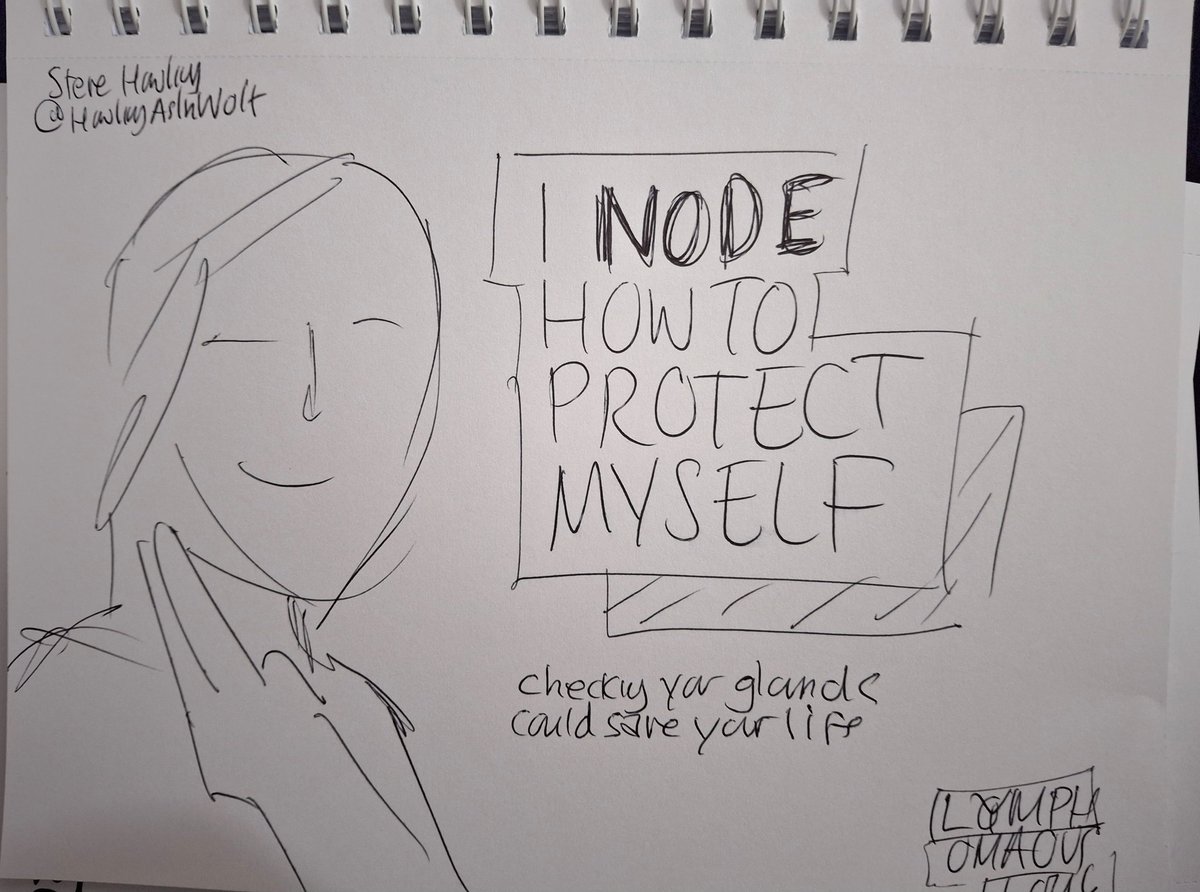 Steve Hawley
@HawleyAsInWolf
I NODE
HOW TO
PROTECT
MYSELF
checking your glands
could save your life
LYMPH
OMAOUT